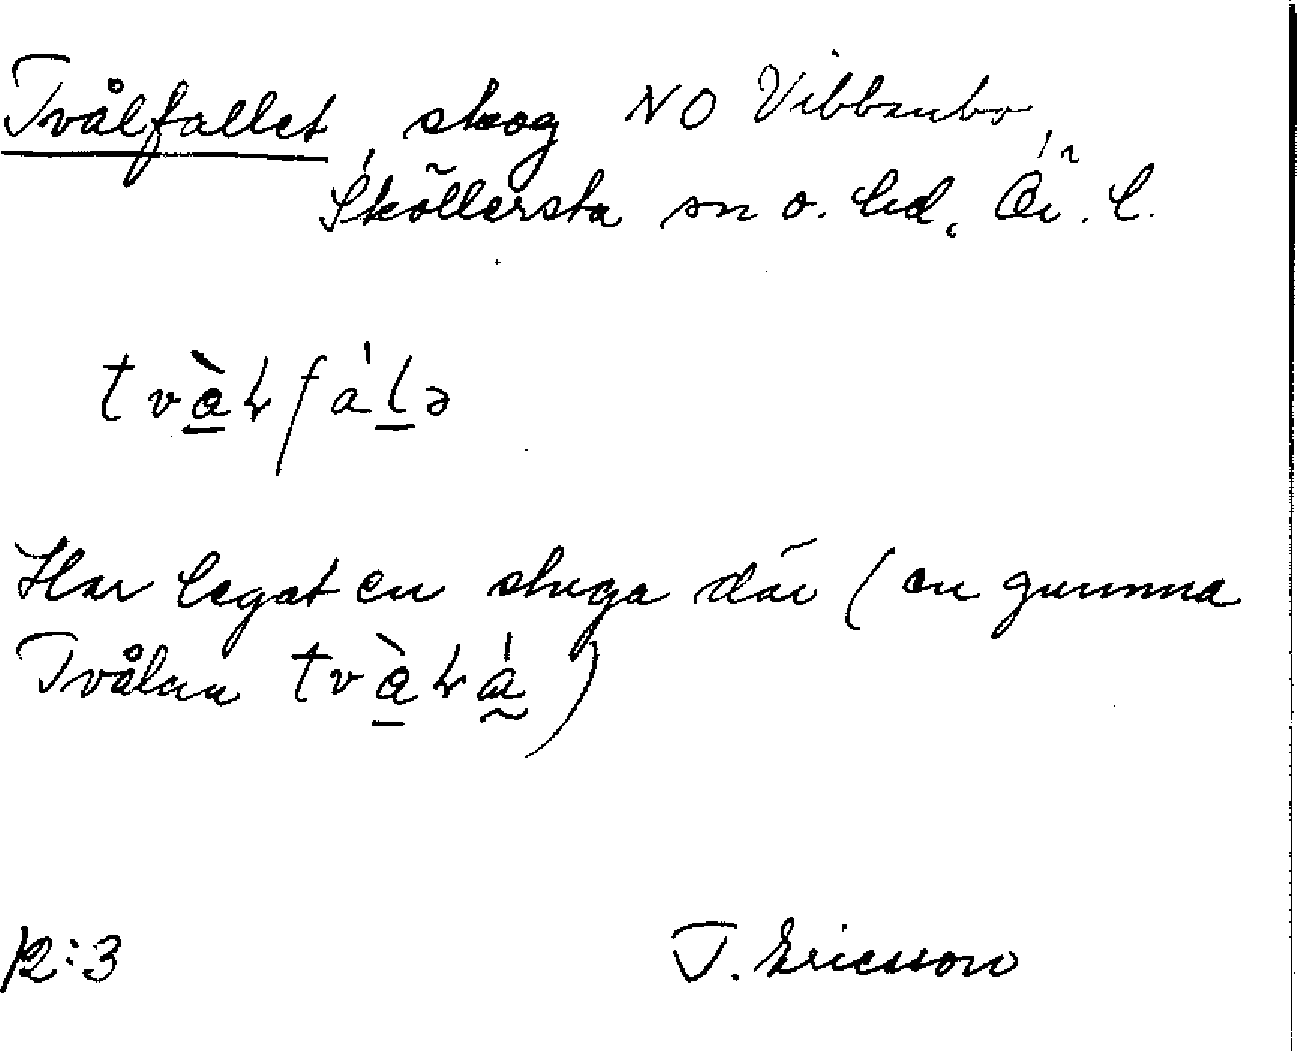 Tvålfallet, skog NO Vibbenbo,
Sköllersta sn o. hd, Ör. l.
tvàɽfálə
Har legat en stuga där (en gumma
Tvålan tvàɽá)
12:3
T. Ericsson